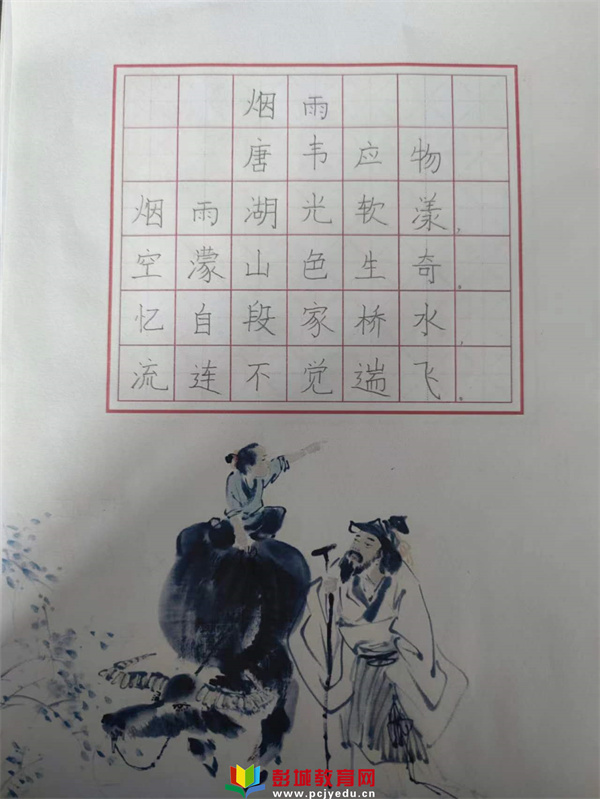 烟雨
唐韦应物
烟雨湖光软漾,
空濛山色生奇。
忆自段家桥水,
流连不觉遄飞。
彭城教育网
www.pcjyedu.cn